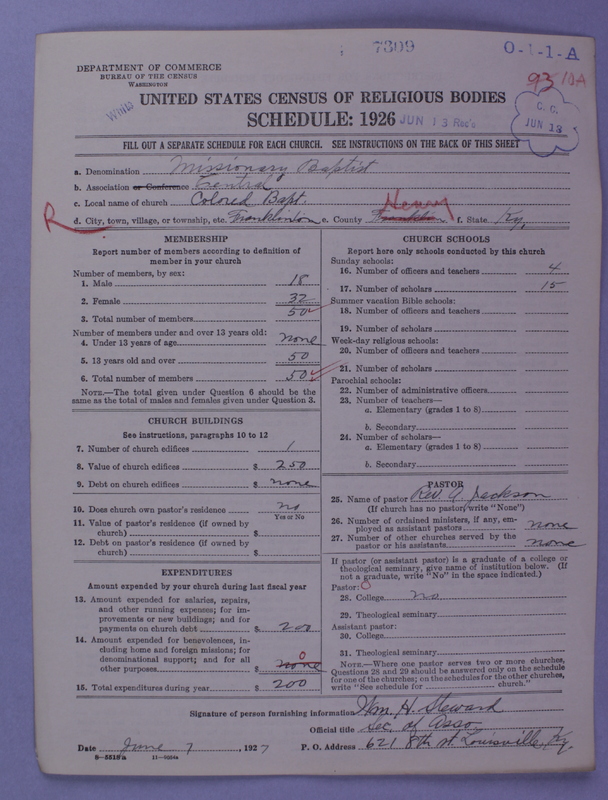 7309
O-1-1-A
93 10A
DEPARTMENT OF COMMERCE
BUREAU OF THE CENSUS
WASHINGTON
White
UNITED STATES CENSUS OF RELIGIOUS BODIES
SCHEDULE: 1926
JUN 13 Rec'd
C. C.
JUN 13
FILL OUT A SEPARATE SCHEDULE FOR EACH CHURCH. SEE INSTRUCTIONS ON THE BACK OF THIS SHEET
a. Denomination Missionary Baptist
b. Association or Conference Central
c. Local name of church Colored Bapt.
R d. City, town, village, or township, etc. Franklinton e. County Franklin Henry f. State Ky.
MEMBERSHIP
Report number of members according to definition of
member in your church
Number of members, by sex:
1. Male 18
2. Female 32
3. Total number of members 50
Number of members under and over 13 years old:
4. Under 13 years of age none
5. 13 years old and over 50
6. Total number of members 50
NOTE.—The total given under Question 6 should be
same as the total of males and females given under Question 3.
CHURCH BUILDINGS
See instructions, paragraphs 10 to 12
7. Number of church edifices 1
8. Value of church edifices $ 250
9. Debt on church edifices $ none
10. Does church own pastor's residence? no
Yes or No
11. Value of pastor's residence (if owned by
church) $
12. Debt on pastor's residence (if owned by
church) $
EXPENDITURES
Amount expended by your church during last fiscal year
13. Amount expended for salaries, repairs,
and other running expenses; for im-
provements or new buildings; and for
payments on church debt $ 200
14. Amount expended for benevolences, in-
cluding home and foreign missions; for
denominational support; and for all
other purposes $ none 0
15. Total expenditures during year $ 200
CHURCH SCHOOLS
Report here only schools conducted by this church
Sunday schools:
16. Number of officers and teachers 4
17. Number of scholars 15
Summer vacation Bible schools:
18. Number of officers and teachers
19. Number of scholars
Week-day religious schools:
20. Number of officers and teachers
21. Number of scholars
Parochial schools:
22. Number of administrative officers
23. Number of teachers—
a. Elementary (grades 1 to 8)
b. Secondary
24. Number of scholars—
a. Elementary (grades 1 to 8)
b. Secondary
PASTOR
25. Name of pastor Rev. A. Jackson
(If church has no pastor, write "None")
26. Number of ordained ministers, if any, em-
ployed as assistant pastors none
27. Number of other churches served by the
pastor or his assistants none
If pastor (or assistant pastor) is a graduate of a college or
theological seminary, give name of institution below. (If
not a graduate, write "No" in the space indicated.)
Pastor: 0
28. College no
29. Theological seminary
Assistant pastor:
30. College
31. Theological seminary
NOTE.—Where one pastor serves two or more churches,
Questions 28 and 29 should be answered only on the schedule
for one of the churches; on the schedules for the other churches,
write "See schedule for church."
Signature of person furnishing information Wm. H. Steward
Official title Sec. of Asso.
Date June 7, 1927 P. O. Address 621 8th st. Louisville, Ky.
8-5518a 11-8664a